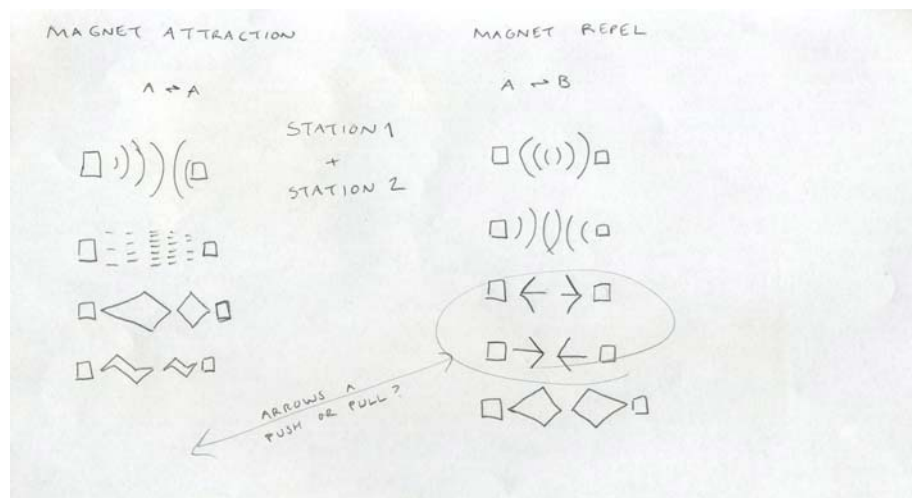 MAGNET ATTRACTION
A ⇌ A
STATION 1
+
STATION 2
MAGNET REPEL
A ⇌ B
ARROWS A
PUSH OR PULL?